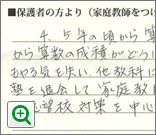 ■保護者の方より（家庭教師をつけ
4、5年の頃から算
から算数の成績がどうに
わやる気を失い、他教科に
塾を退会して家庭教
学校対策を中心